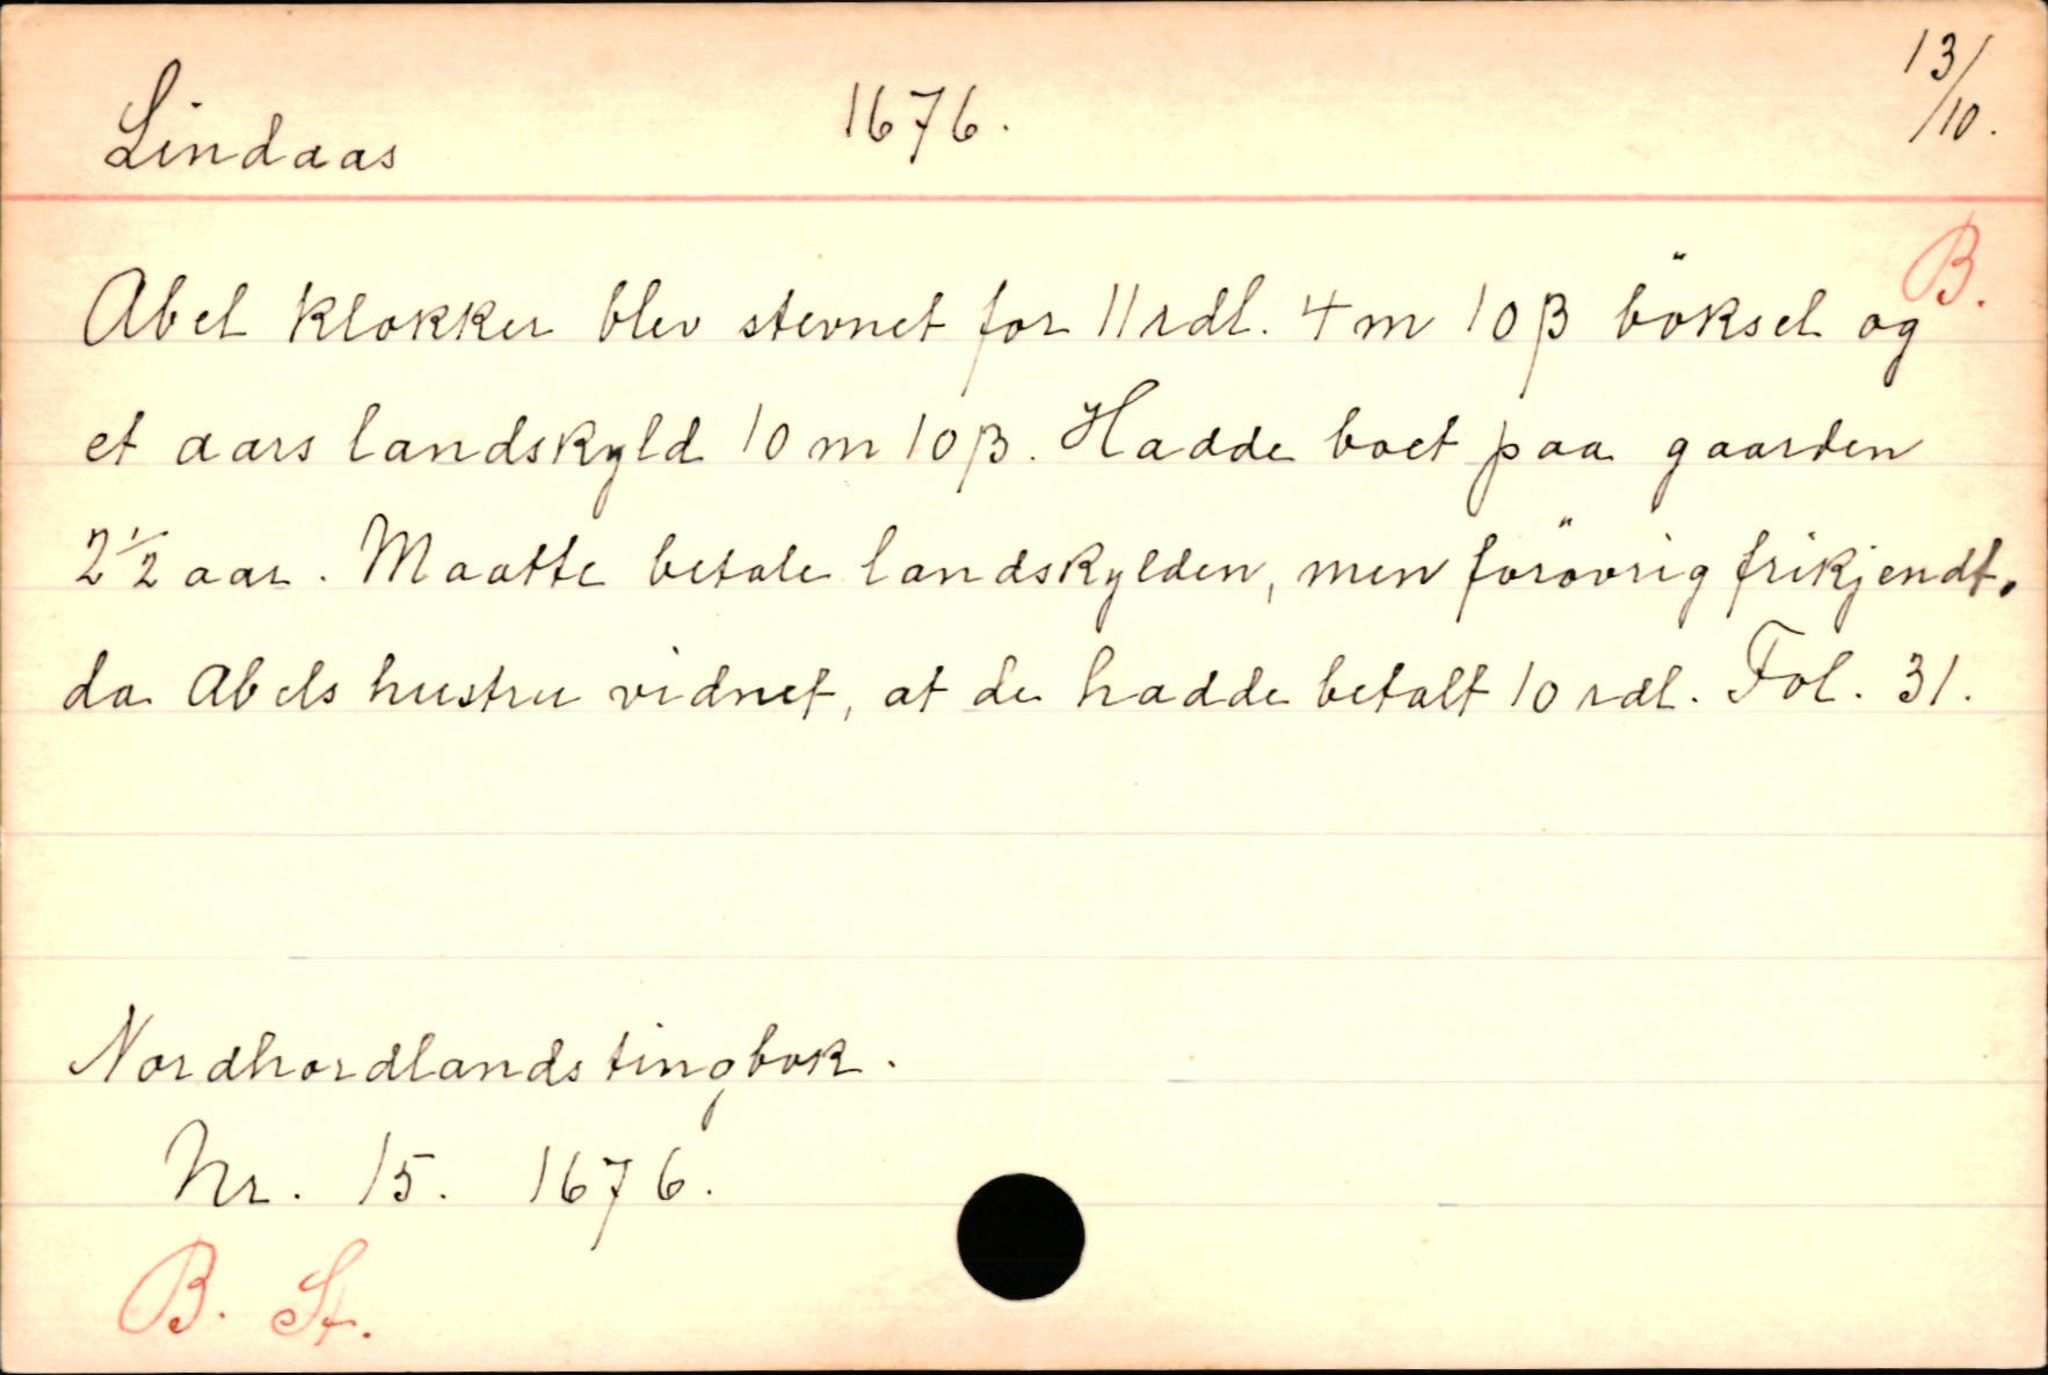 Lindaas 1676. 13/10.
B.
Abel klokker blev stevnet for 11 rdl. 4 m 10 β böksel og
et aars landskyld 10 m 10 β. Hadde boet paa gaarden
2 1/2 aar. Maatte betale landskylden, men forövrig frikjendt,
da Abels hustru vidnet, at de hadde betalt 10 rdl. Fol. 31.
Nordhordlands tingbok.
Nr. 15. 1676.
B. St.